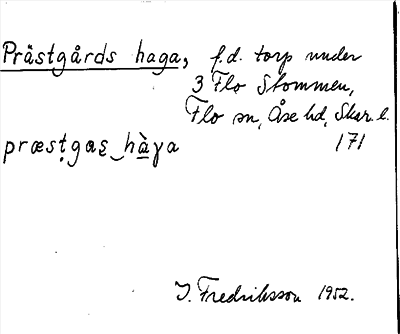 Prästgårds haga, f.d. torp under
3 Flo Stommen,
Flo sn, Åse hd, Skar. l.
præsṭgas hàɣa 171
I. Fredriksson 1952.